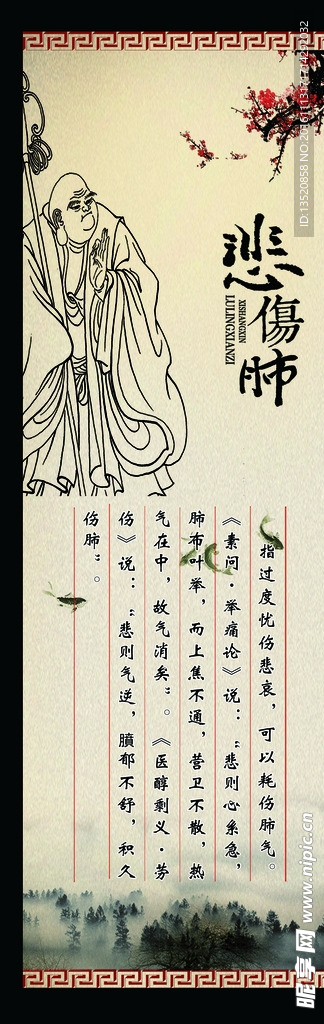 悲傷肺
XISHANGXIN
LULINGXIANZI
指过度忧伤悲哀，可以耗伤肺气。
《素问·举痛论》说：“悲则心系急，
肺布叶举，而上焦不通，营卫不散，热
气在中，故气消矣”。《医醇剩义·劳
伤》说：“悲则气逆，膹郁不舒，积久
伤肺”。
昵享网 www.nipic.cn